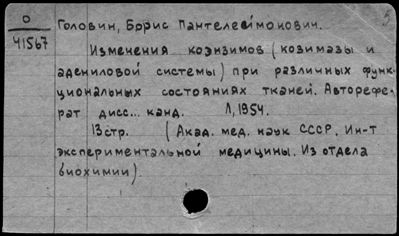 О
41567
Головин, Борис Пантелеймонович.
Изменения коэнзимов (козимазы и
адениловой системы) при различных функ-
циональных состояниях тканей. Авторефе-
рат дисс... канд. Л, 1954.
13 стр. (Акад. мед. наук СССР. Ин-т
экспериментальной медицины. Из отдела
биохимии)